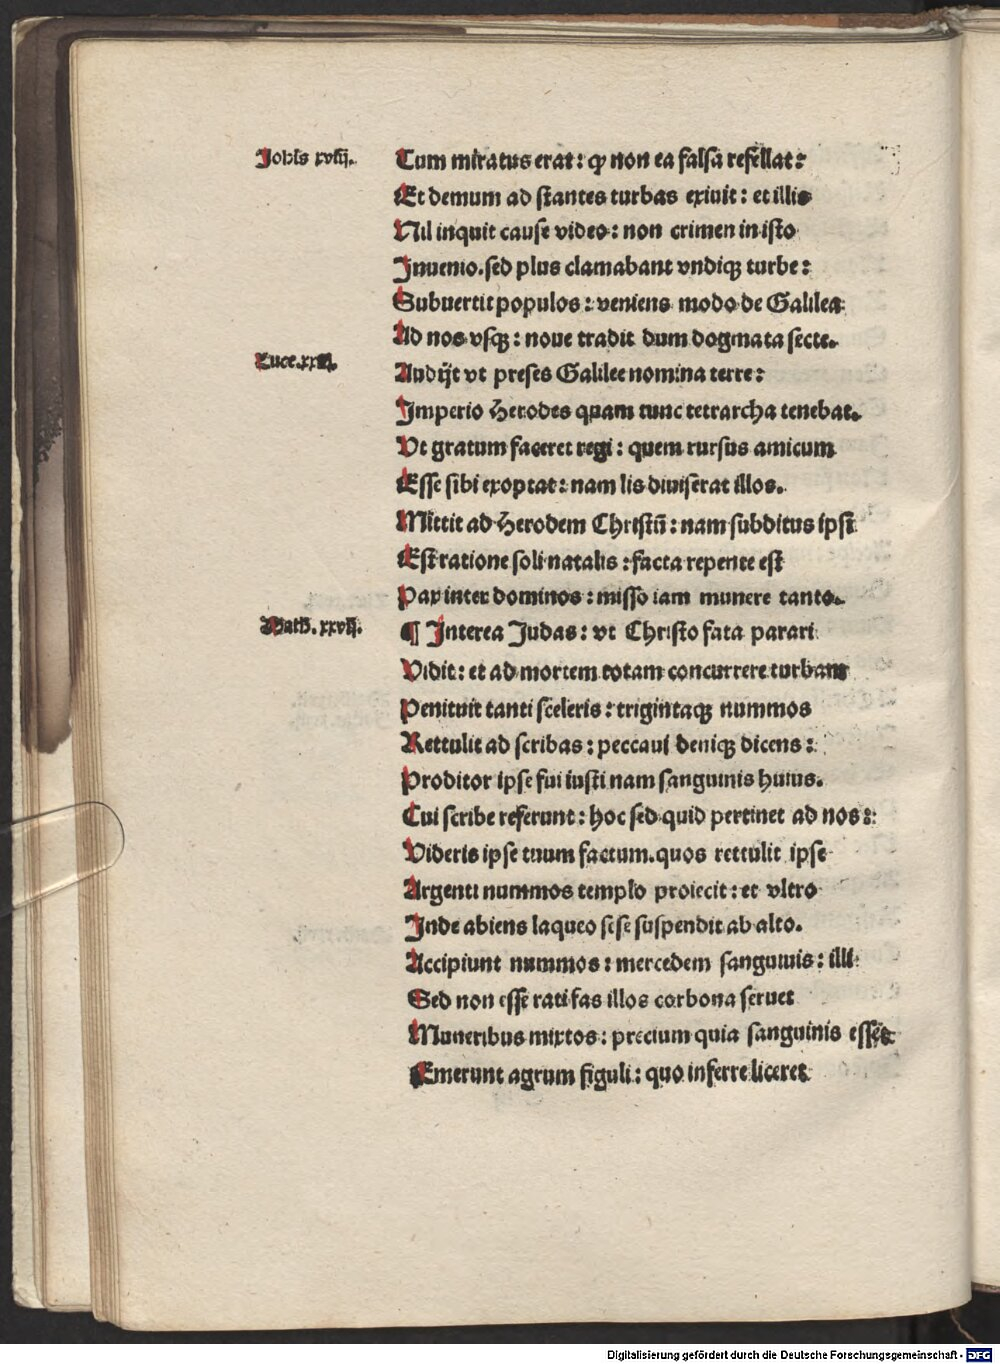 Johīs xviij.
Cum miratus erat: ꝙ non ea falsa refellat:
Et demum ad stantes turbas exiuit: et illis
Nil inquit cause video: non crimen in isto
Inuenio. sed plus clamabant vndiqꝫ turbe:
Subuertit populos: veniens modo de Galilea
Ad nos vsqꝫ: noue tradit dum dogmata secte.
Luce. xxiij.
Audijt vt preses Galilee nomina terre:
Imperio Herodes quam tunc tetrarcha tenebat.
Vt gratum faceret regi: quem rursus amicum
Esse sibi exoptat: nam lis diuiserat illos.
Mittit ad Herodem Christū: nam subditus ipsi
Est ratione soli natalis: facta repente est
Pax inter dominos: misso iam munere tanto.
Math. xxvij.
¶ Interea Judas: vt Christo fata parari
Vidit: et ad mortem totam concurrere turbam
Penituit tanti sceleris: trigintaqꝫ nummos
Rettulit ad scribas: peccaui deniqꝫ dicens:
Proditor ipse fui iusti nam sanguinis huius.
Cui scribe referunt: hoc sed quid pertinet ad nos:
Videris ipse tuum factum. quos rettulit ipse
Argenti nummos templo proiecit: et vltro
Inde abiens laqueo sese suspendit ab alto.
Accipiunt nummos: mercedem sanguinis: illi
Sed non esse rati fas illos corbona seruet
Muneribus mixtos: precium quia sanguinis esset
Emerunt agrum figuli: quo inferre liceret
Digitalisierung gefördert durch die Deutsche Forschungsgemeinschaft - DFG